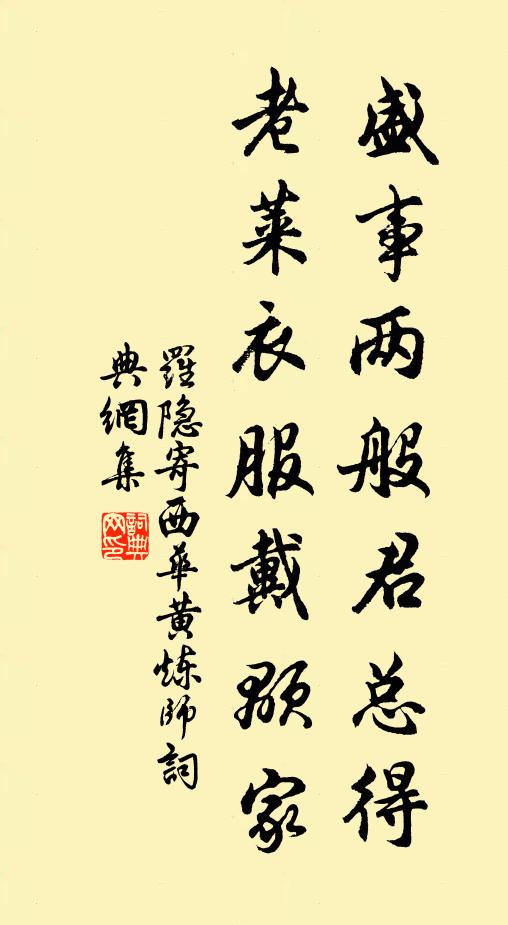 盛事两般君总得
老莱衣服戴颙家
羅隐寄西华黄炼师詞
典網集
詞典网印